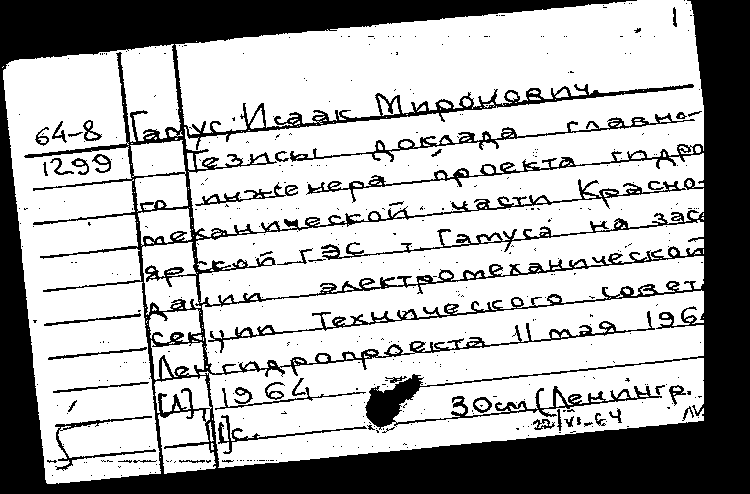 1
64-8 Гамус, Исаак Миронович.
1299 Тезисы доклада главно-
го инженера проекта гидро
механической части Красно-
ярской ГЭС т. Гамуса на засе
дании электромеханической
секции Технического совет
Ленгидропроекта 11 мая 196
[Л], 1964
[1]с. 30см (Ленингр.
22/VI-64